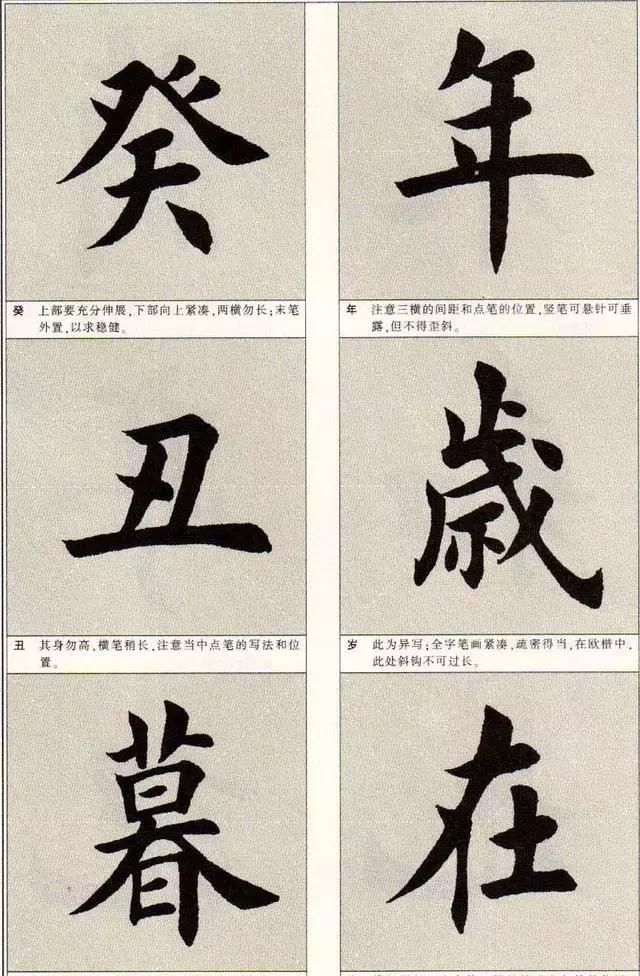 年
年 注意三横的间距和点笔的位置,竖笔可悬针可垂
露,但不得歪斜。
歳
岁 此为异写;全字笔画紧凑,疏密得当,在欧楷中,
此处斜钩不可过长。
在
癸
癸 上部要充分伸展,下部向上紧凑,两横勿长;末笔
外置,以求稳健。
丑
丑 其身勿高,横笔稍长,注意当中点笔的写法和位
置。
暮